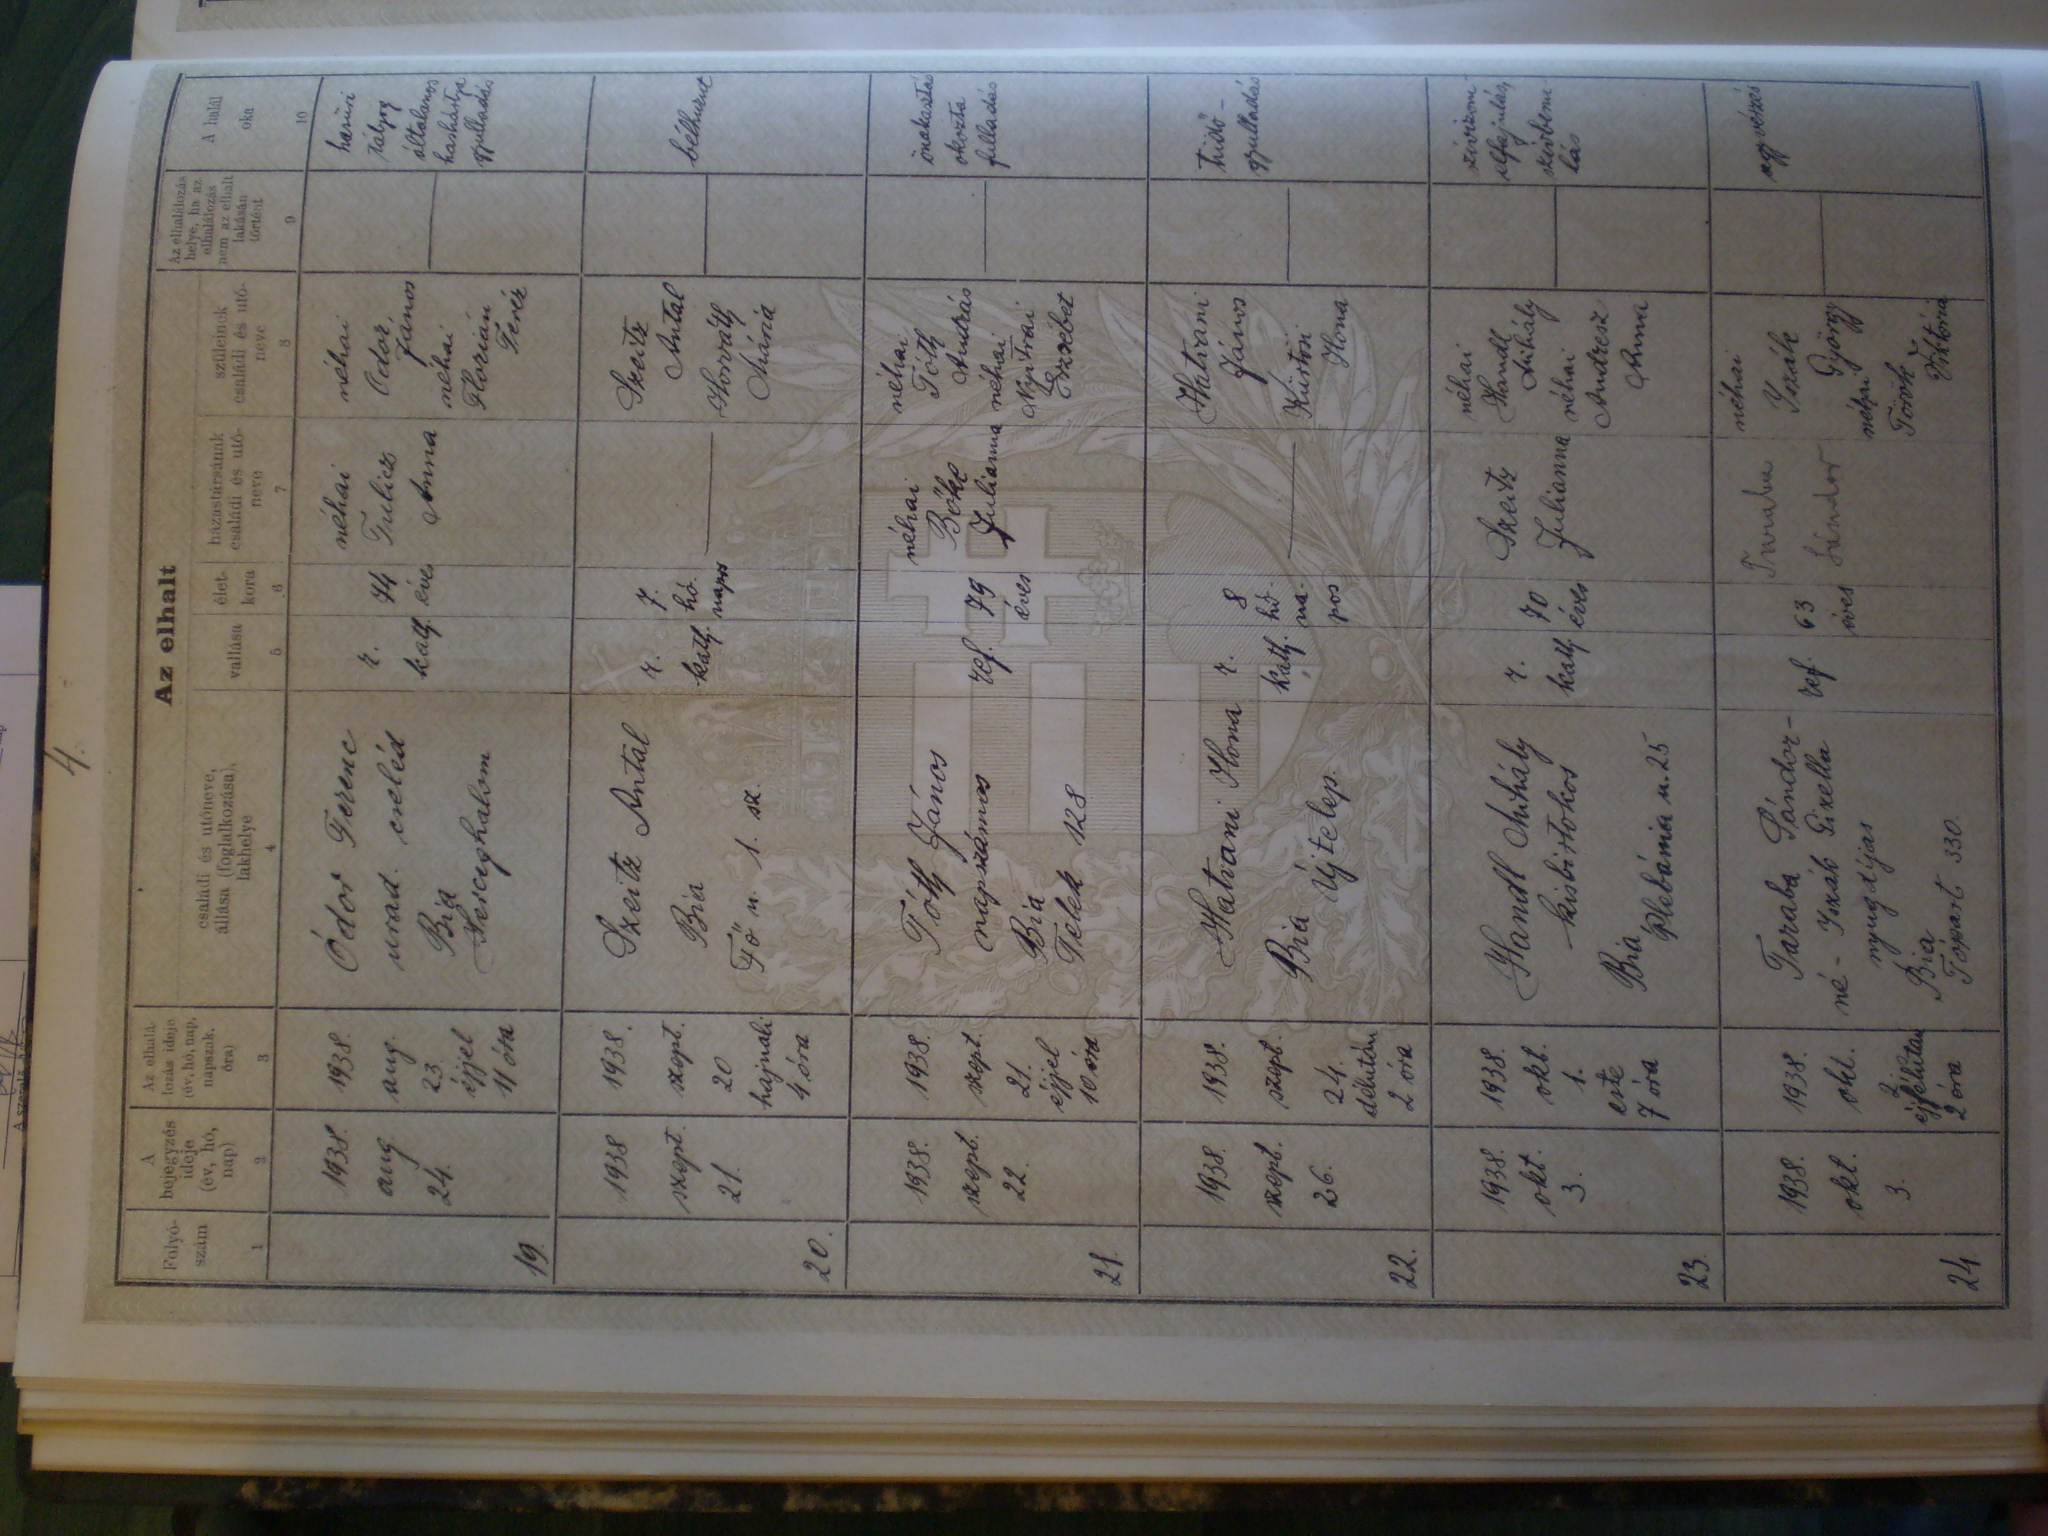 4.
Az elhalt
Folyó-
szám
A
bejegyzés
ideje
(év, hó,
nap)
Az elhalá-
lozás ideje
(év, hó, nap,
napszak,
óra)
családi és utóneve,
állása (foglalkozása),
lakhelye
vallása
élet-
kora
házastársának
családi és utó-
neve
szüleinek
családi és utó-
neve
Az elhalálozás
helye, ha az
elhalálozás
nem az elhalt
lakásán
történt
A halál
oka
1
2
3
4
5
6
7
8
9
10
19.
1938.
aug
24.
1938.
aug.
23.
éjjel
11 óra
Ódor Ferenc
urad. cseléd
Bia
Herceghalom
r.
kath.
74
éves
néhai
Anna
néhai
Odor
János
néhai
Florián
Teréz
hasűri
általános
hashártya
gyulladás
20.
1938
szept.
21.
1938.
szept.
20
hajnali
4 óra
Szeitz Antal
Bia
Fő u. 1. sz.
r.
kath.
7.
hó.
napos
Szeitz
Antal
Horváth
Mária
bélhurut
21.
1938.
szept.
22.
1938.
szept.
21.
éjjel
10 óra
Tóth János
napszámos
Bia
Telek 128
ref.
79
éves
néhai
Bőke
Julianna
néhai
Tóth
András
néhai
Nyitrai
Erzsébet
önakasztás
okozta
fulladás
22.
1938.
szept.
26.
1938.
szept.
24.
délután
2 óra
Hatvani Ilona
Bia Újtelep.
r.
kath.
8
hó-
na-
pos
Hatvani
János
Kürtösi
Ilona
tüdő-
gyulladás
23.
1938.
okt.
3.
1938.
okt.
1.
este
7 óra
Handl Mihály
kisbirtokos
Bia
Plébánia u. 25
r.
kath.
70
éves
Szeitz
Julianna
néhai
Handl
Mihály
néhai
Andresz
Anna
szívizom-
elfajulás,
szívbénu-
lás
24.
1938.
okt.
3.
1938.
okt.
2
éjfélután
2 óra
Taraba Sándor-
né - Izsák Gizella
nyugdíjas
Bia
Tópart 330.
ref.
63
éves
Taraba
Sándor
néhai
Izsák
György
néhai
Török
Viktória
agyvérzés